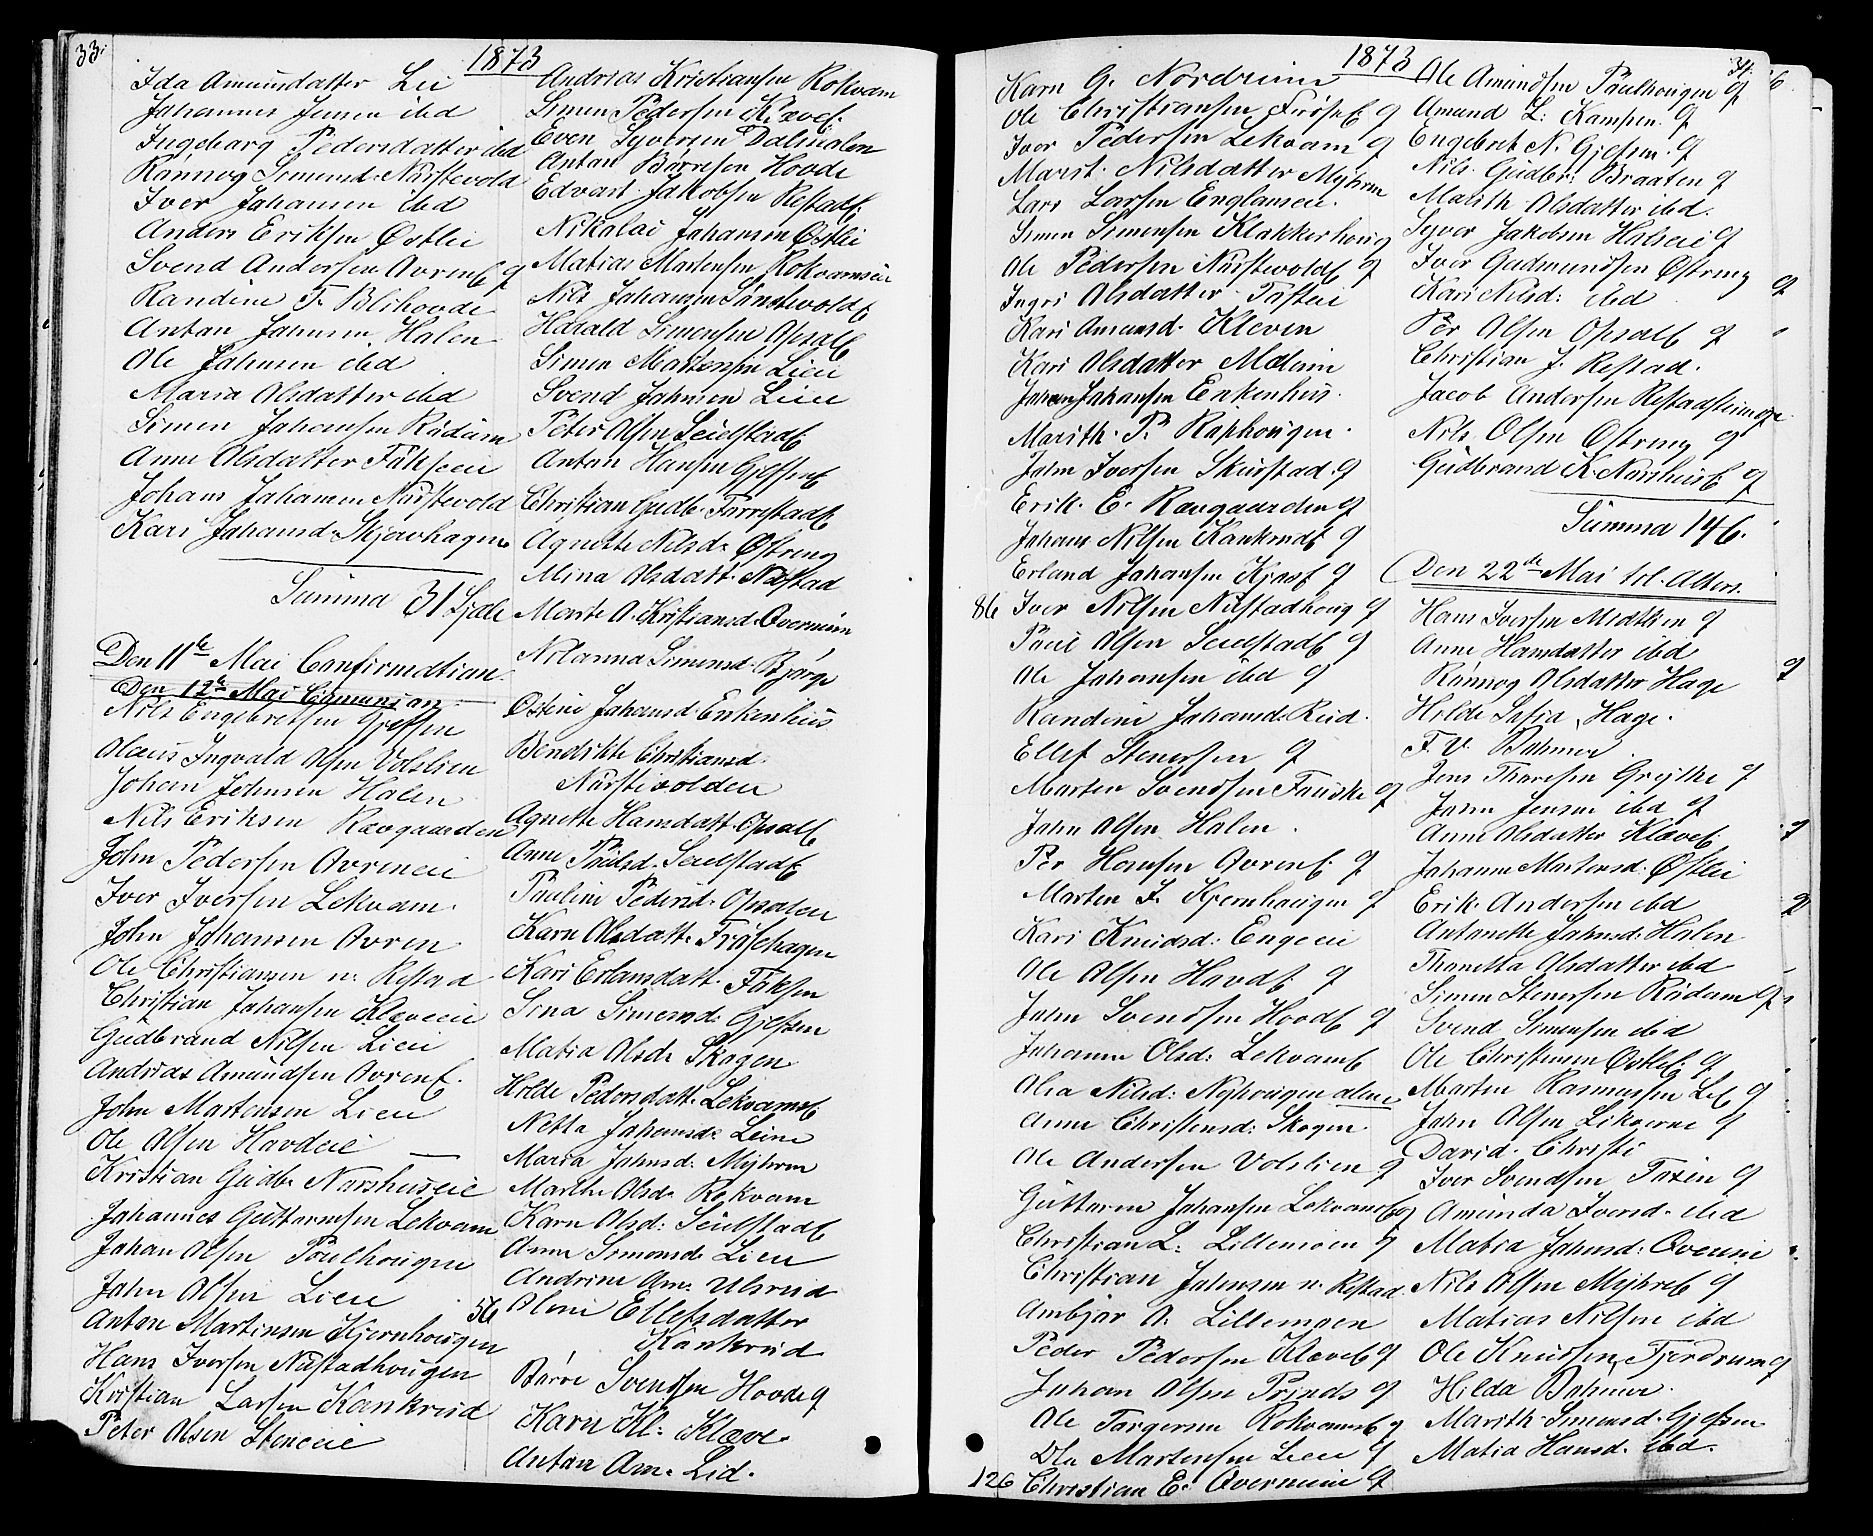 33.
1873
Ida Amunsdatter Lie
Johannes Jensen ibd
Ingeborg Pedersdatter ibd
Rønnog Simensd. Nustevold
Iver Johansen ibd
Anders Eriksen Østlie
Svend Andersen Avrene g
Randine T. Blihovde
Anton Johnsen Halen
Ole Johnsen ibd
Maria Olsdatter ibd
Simen Johansen Rudum
Anne Olsdatter Fukseie
Johans Johansen Nustevold
Kari Johansd. Skjævhagen
Summa 31 Sjæle
Den 11te Mai Confirmation
Den 12te Mai Comunion
Nils Engebretsen Gjefsen
Olaus Ingvald Olsen Volslien
Johan Johnsen Halen
Nils Eriksen Rævgaarden
John Pedersen Avreneie
Iver Iversen Lekvam
John Johansen Avren
Ole Christiansen n. Restad
Christian Johansen Kleveeie
Gudbrand Nilsen Lieie
Andreas Amundsen Avrene
John Martensen Lieie
Ole Olsen Havdeie
Kristian Gudb. Narshuseie
Johannes Guttormsen Lekvam
Johan Olsen Poulhougen
John Olsen Lieie
Anton Martinsen Kjernhougen
Hans Iversen Nustadhougen
Kristian Larsen Kankrud
Peter Olsen Steneeie
Andrias Kristiansen Rokvam
Simen Pedersen Kleve
Even Syversen Dalsvalen
Anton Børresen Hovde
Edvart Jakobsen Restad
Nikolai Johansen Østlie
Matias Martensen Rokvamseie
Nils Johansen Sønstevold
Harald Simensen Opsal
Simen Martensen Lieie
Svend Johnsen Lieie
Peter Olsen Seielstad
Anton Hansen Gjefsen
Christian Gudb. Forrestad
Agnethe Nilsd. Østreng
Mina Olsdatt. Nustad
Marte A. Kristiansd. Overmoen
Nilanna Simensd. Bjørge
Ostine Johansd. Enkenhus
Bendikte Christiansd.
Nustevolden
Agnethe Hansdatt. Opsal
Anne Paulsd. Seielstad
Pauline Pedersd. Opsalen
Karn Olsdatt. Frøsehagen
Kari Erlansdatt. Fuksen
Sina Simensd. Gjefsen
Matia Olsd. Skogen
Hilde Pedersdatt. Lekvam
Netta Johansd. Leine
Maria Johnsd. Myhren
Marthe Olsd. Rokvam
Karn Olsd: Seielstad
Anne Simonsd. Lieie
Andrine Am. Ulsrud
56 Oline Ellefsdatter
Kankrud
Børre Svendsen Hovde g
Karn Kl: Klæve
Anton Am. Lid.
34.
1873
Karn G. Nordrum
Ole Christiansen Frøse g
Iver Pedersen Lekvam g
Marit Nilsdatter Myhren
Lars Larsen Englanseie
Simen Simensen Klokkerhoug
Ole Pedersen Nustevold g
Ingri Olsdatter Fosteie
Kari Amunsd. Kleven
Kari Olsdatter Moelun
Johan Johansen Enkenhus
Marith P. Raphougen
John Iversen Skurstad g
Erik E. Rævgaarden g
Johans Nilsen Kankrud g
Erland Johansen Kjøs g
86 Iver Nilsen Nustadhoug g
Paul Olsen Seielstad g
Ole Johansen ibd g
Randine Johansd. Rud
Ellef Stenersen g
Marten Svendsen Fauske g
John Olsen Halen
Per Hansen Avren g
Marten J. Kjernhaugen g
Kari Knudsd: Engeeie
Ole Olsen Havd g
John Svendsen Hovd g
Johanne Olsd: Lekvam
Olea Nilsd: Nyhougen alene
Anne Christensd: Skogen
Ole Andersen Volslien g
Guttorm Johansen Lekvam g
Christian L: Lillemoen g
Christian Johnsen n. Restad
Ambjør O. Lillemoen
Peder Pedersen Kleve g
Johan Olsen Prinds g
Ole Torgersen Rokvam g
Ole Martensen Lieie g
126 Christian E. Overmoen g
Ole Amundsen Paulhougen g
Amund L: Kampen g
Engebret N. Gjefsen g
Nils Gudbr: Braaten g
Marith Olsdatter ibd.
Syver Jakobsen Halseie g
Iver Gudmundsen Østreng
Kari Nilsd: ibd g
Per Olsen Opsal g
Christian J. Restad.
Jacob Andersen Restadsteinmo
Nils Olsen Østreng g
Gudbrand K. Narshus g
Summa 146.
Den 22de Mai til Alters.
Hans Iversen Midthen g
Anne Hansdatter ibd
Rønnog Olsdatter Hage g
Hilde Sofia Hage.
F. V. Bøhmer
Jens Thoresen Grythe g
John Jensen ibd g
Anne Olsdatter Kleve
Johanne Martensd: Østlie
Erik Andersen ibd
Antonette Johnsd: Halen
Thonetta Olsdatter ibd
Simen Stenersen Rudum g
Svend Simensen ibd
Ole Christensen Østlie g
Marten Rasmussen Lie g
John Olsen Likværne g
David Christi
Iver Svendsen Toxen g
Amunda Iversd. ibd
Matia Johnsd: Ovenni
Nils Olsen Myhre g
Matias Nilsen ibd
Ole Knudsen Tjerdrum g
Hilda Bøhmer
Marith Simensd. Gjefsen
Matia Hansd. ibd.